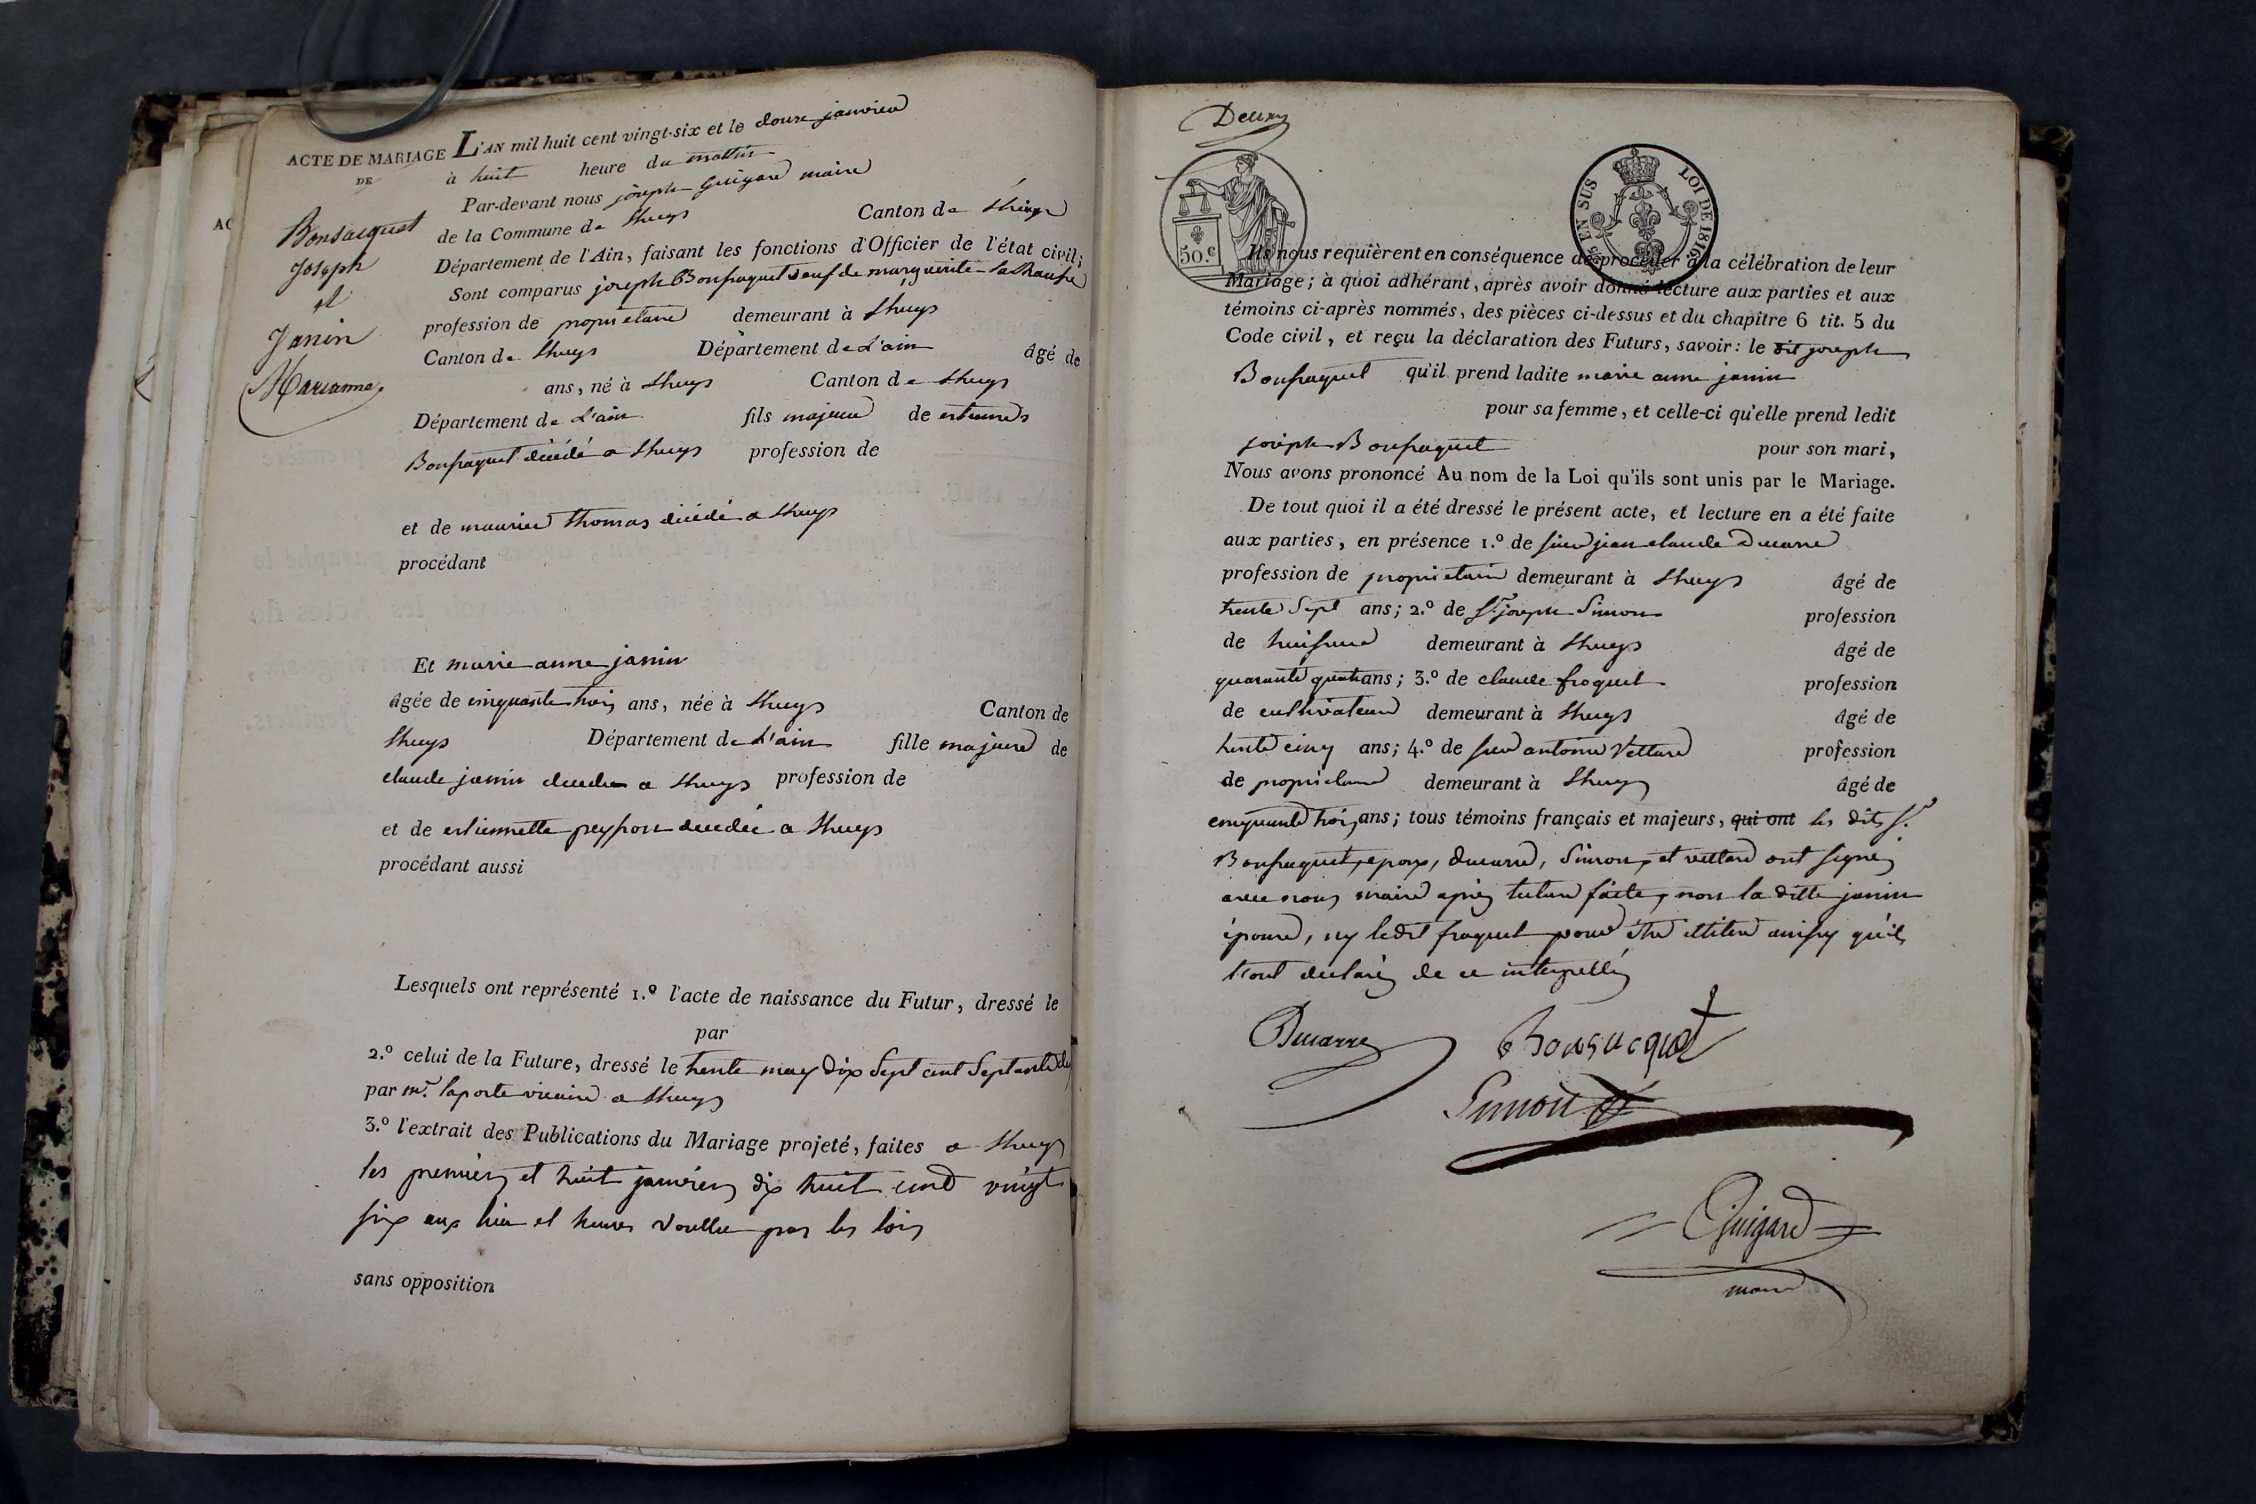 ACTE DE MARIAGE
DE
Bonsacquet
Joseph
et
Janin
Marianne
L'AN mil huit cent vingt-six et le douze janvier
à huit heure du mattin
Par-devant nous joseph Guigard maire
de la Commune de Lhuys Canton de Lhuys
Département de l'Ain, faisant les fonctions d'Officier de l'état civil;
Sont comparus joseph Bonsaquet veuf de marguerite
profession de proprietaire demeurant à Lhuys
Canton de Lhuys Département de L'ain âgé de
ans, né à Lhuys Canton de Lhuys
Département de L'ain fils majeur de
Bonsaquet décédé a Lhuys profession de
et de thomas décédé a Lhuys
procédant
Et marie anne janin
âgée de cinquante trois ans, née à Lhuys Canton de
Lhuys Département de L'ain fille majeure de
claude janin decede a Lhuys profession de
et de estiennette peysson decedée a Lhuys
procédant aussi
Lesquels ont représenté 1.º l'acte de naissance du Futur, dressé le
par
2.º celui de la Future, dressé le trente may dix Sept cent Septante
par mr. laporte vicaire a Lhuys
3.º l'extrait des Publications du Mariage projeté, faites a Lhuys
les premier et huit janvier dix huit cent vingt
six aux lieu et heures voullu par les lois
sans opposition
50 c
EN SUS LOI DE 1816
Ils nous requièrent en conséquence de procéder à la célébration de leur
Mariage; à quoi adhérant, après avoir donné lecture aux parties et aux
témoins ci-après nommés, des pièces ci-dessus et du chapitre 6 tit. 5 du
Code civil, et reçu la déclaration des Futurs, savoir: le dit joseph
Bonsaquet qu'il prend ladite marie anne janin
pour sa femme, et celle-ci qu'elle prend ledit
joseph Bonsaquet pour son mari,
Nous avons prononcé Au nom de la Loi qu'ils sont unis par le Mariage.
De tout quoi il a été dressé le présent acte, et lecture en a été faite
aux parties, en présence 1.º de sieur jean claude Ducarre
profession de proprietaire demeurant à Lhuys âgé de
trente Sept ans; 2.º de Sr. joseph Simon profession
de huissier demeurant à Lhuys âgé de
quarante quatre ans; 3.º de claude froquet profession
de cultivateur demeurant à Lhuys âgé de
trente cinq ans; 4.º de sieur antoine Vettard profession
de proprietaire demeurant à Lhuys âgé de
cinquante trois ans; tous témoins français et majeurs, qui ont les dits Sr.
Bonsaquet, epoux, ducarre, Simon, et vettard ont signé
avec nous maire après lecture faite, non la ditte janin
épouse, ny ledit froquet pour être illitere ainsy qu'ils
l'ont declaré de ce interpellés
Ducarre Bonsacquet
Simon
Guigard
maire